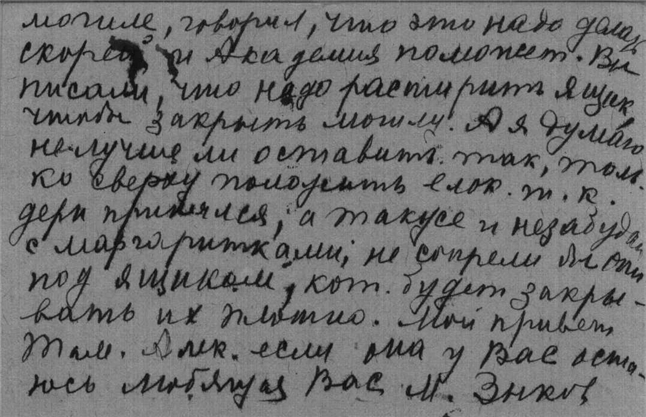 могиле, говорил, что это надо делать
скорей и Академия поможет. Вы
писали, что надо расширить ящик
чтобы закрыть могилу. А я думаю
не лучше ли оставить так, толь-
ко сверху положить елок. т. к.
дерн принялся, а также и незабудки
с маргаритками, не сопрели бы они
под ящиком, кот. будет закры-
вать их плотно. Мой привет
Там. Алек. если она у Вас оста-
юсь любящая Вас М.